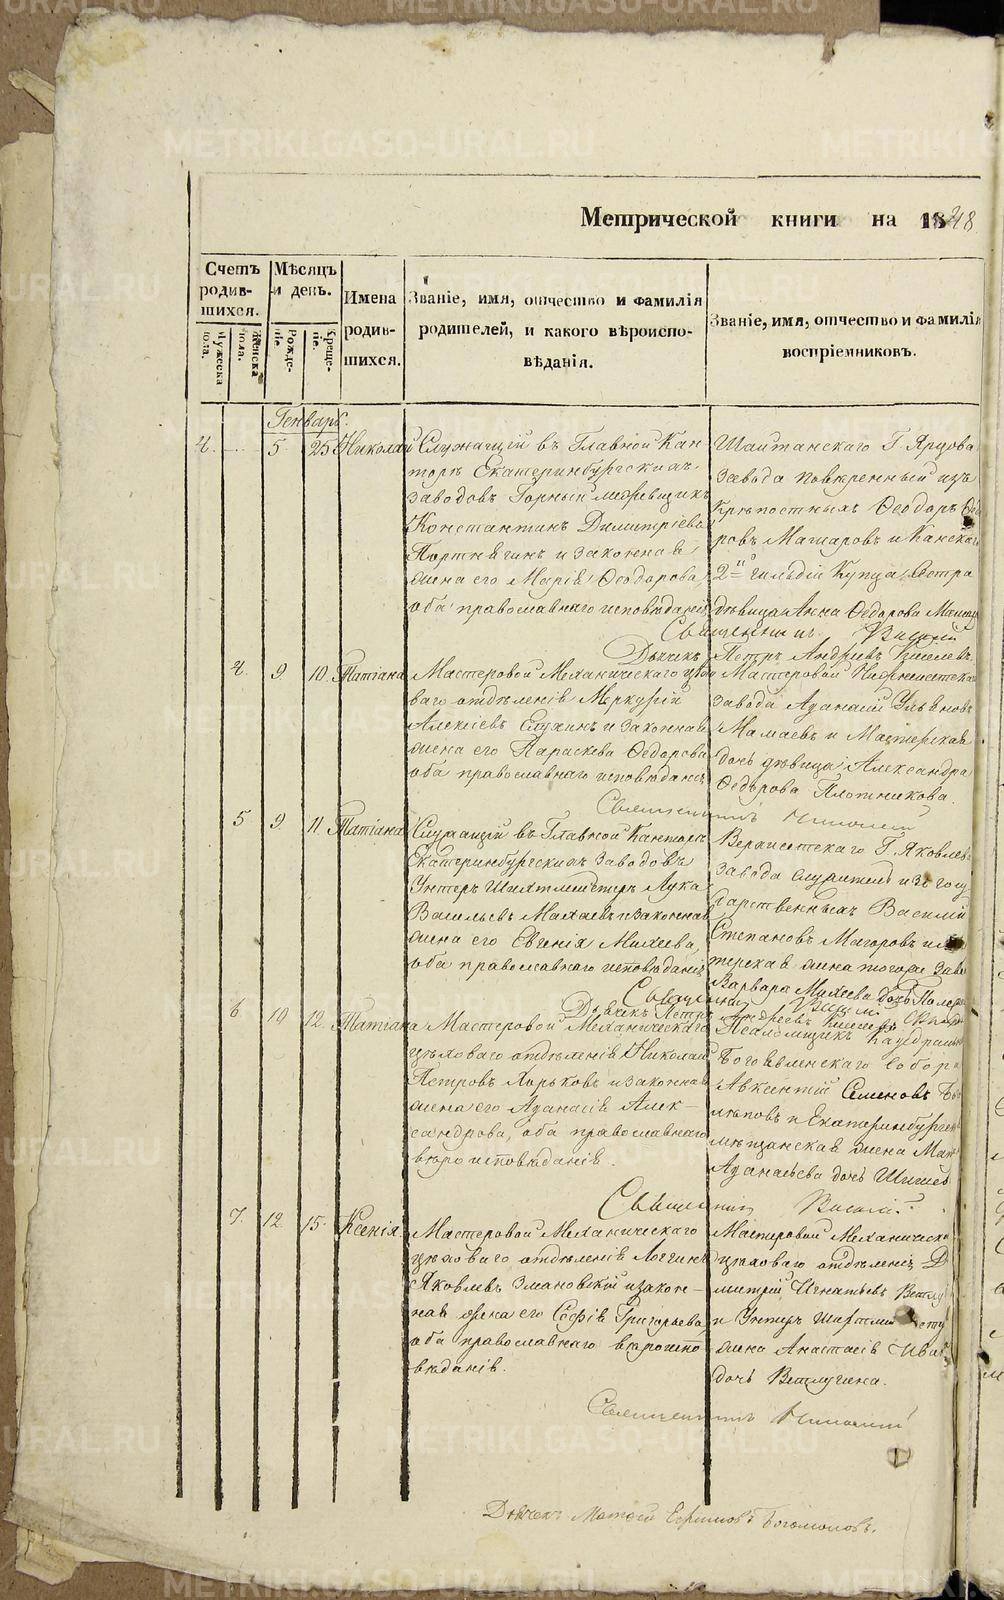 METRIKI.GASO-URAL.RU
Метрической книги на 1848
Счетъ родив-шихся.
Мѣсяцъ и день.
Имена родив-шихся.
Званіе, имя, отчество и фамилія родителей, и какого вѣроиспо-вѣданія.
Званіе, имя, отчество и фамилія воспріемниковъ.
Мужеска пола.
Женска пола.
Рожде-ніе.
Креще-ніе.
Генварь.
4. 5 25 Николай
Служащій въ Главной Кан
торѣ Екатеринбургскихъ
заводовъ Горный межевщикъ
Константинъ Димитріевъ
Портнягинъ и законная
жена его Марія Ѳеодорова,
оба православнаго исповѣданія
Шайтанскаго Г. Ярцова
завода повѣренный изъ
крѣпостныхъ Ѳеодоръ
ровъ Макаровъ и Канскаго
2й гильдіи Купца Сестра
дѣвица Анна Ѳедорова
Священникъ
Дьячекъ Петръ Андреевъ Киселевъ
4. 9 10. Татіана
Мастеровой Механическаго цѣхо
ваго отдѣленія Меркурій
Алексіевъ и законная
жена его Параскева Ѳедорова
оба православнаго исповѣданія
Мастеровой Нижнеисетскаго
завода Аѳанасій Ульяновъ
Мамаевъ и Мастерская
дочь дѣвица Александра
Ѳедорова Плотникова.
Священникъ Николай
5 9 11. Татіана
Служащій въ Главной Конторѣ
Екатеринбургскихъ Заводовъ
Унтеръ Шихтмейстеръ Лука
Васильевъ Махаевъ и законная
жена его Евгенія Михеева,
оба православнаго исповѣданія
Верхисетскаго Г. Яковлева
завода служитель изъ госу
дарственныхъ Василій
Степановъ Магоровъ и
терская жена тогоже заво
Варвара Михеева дочь
Священникъ
Дьячекъ Петръ Андреевъ Киселевъ
6 10 12. Татіана
Мастеровой Механическаго
цѣховаго отдѣленія Николай
Петровъ Хорьковъ и законная
жена его Аѳанасія Алек-
сандрова, оба православнаго
вѣроисповѣданія.
Псаломщикъ Каѳедральн
Богоявленскаго Собора
Авксентій Семеновъ
и Екатеринбургск
мѣщанская жена
Аѳанасьева дочь
Священникъ
7. 12. 15. Ксенія
Мастеровой Механическаго
цѣховаго отдѣленія Логгинъ
Яковлевъ и закон-
ная жена его Софія Григорьева,
оба православнаго вѣроиспо
вѣданія.
Мастеровой Механическа
цѣховаго отдѣленія Д
митрій Игнатьевъ
и Унтеръ
жена Анастасія Ива
дочь Ветлугина.
Священникъ Николай
Дьячекъ Матвей Ефимовъ Богомоловъ.